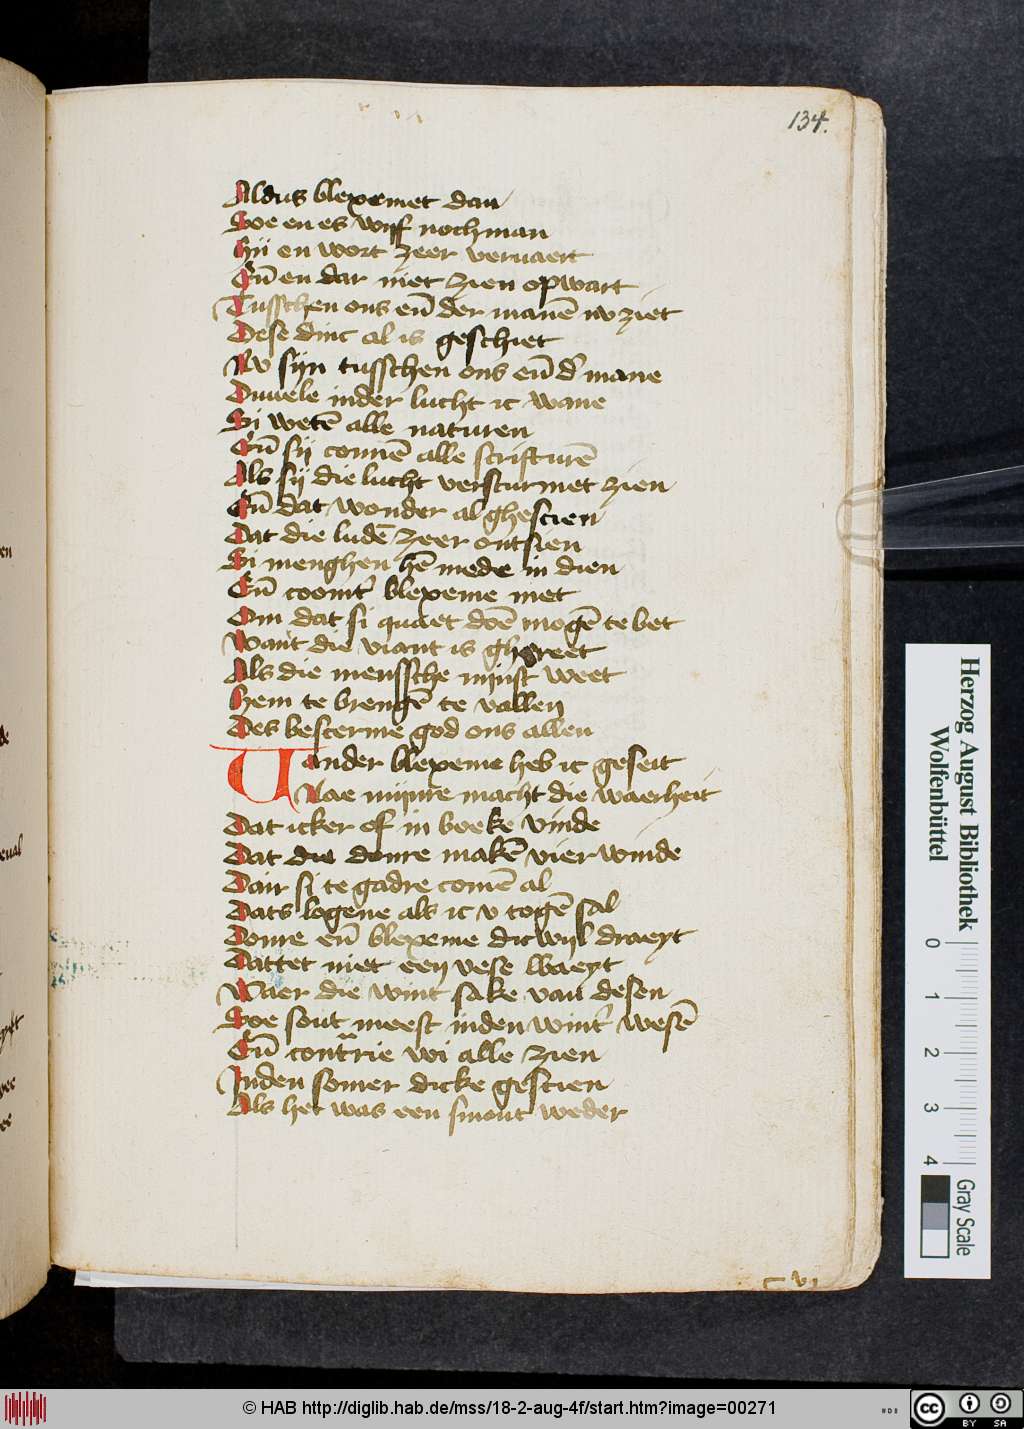 134.
Aldus blexemet dan
Soe en es wijf noch man
Hij en wort zeer veruaert
Eñ en dar niet zien opwart
Tusschen ons eñ der manē nv ziet
Dese dinc al is geschiet
Nv sijn tusschen ons eñ d' mane
Duuele inder lucht ic wane
Si wetē alle naturen
Eñ sij connē alle scrifturē
Als sij die lucht versturmet zien
Eñ dat wonder al ghescien
Dat die ludē zeer ontsien
Si menghen hē mede in dien
Eñ coomt' blexeme met
Om dat si quaet doē mogē te bet
Want die viant is ghereet
Als die menssche mijnst weet
Hem te brengē te vallen
Des bescerme god ons allen
Vander blexeme heb ic geseit
Nae mijnre macht die waerheit
Dat icker of in boeke vinde
Dat die donre makē vier winde
Dair si te gadre comē al
Dats logene als ic v togē sal
Donre eñ blexeme dicwijl draeyt
Dattet niet een vese waeyt
Waer die wint sake van desen
Soe sout meest inden wint' wesē
Eñ contrarie wi alle zien
Inden somer dicke gescien
Als het was een smout weder
en
de
eual
Herzog August Bibliothek
Wolfenbüttel
0 1 2 3 4
Gray Scale
© HAB http://diglib.hab.de/mss/18-2-aug-4f/start.htm?image=00271
cc BY SA